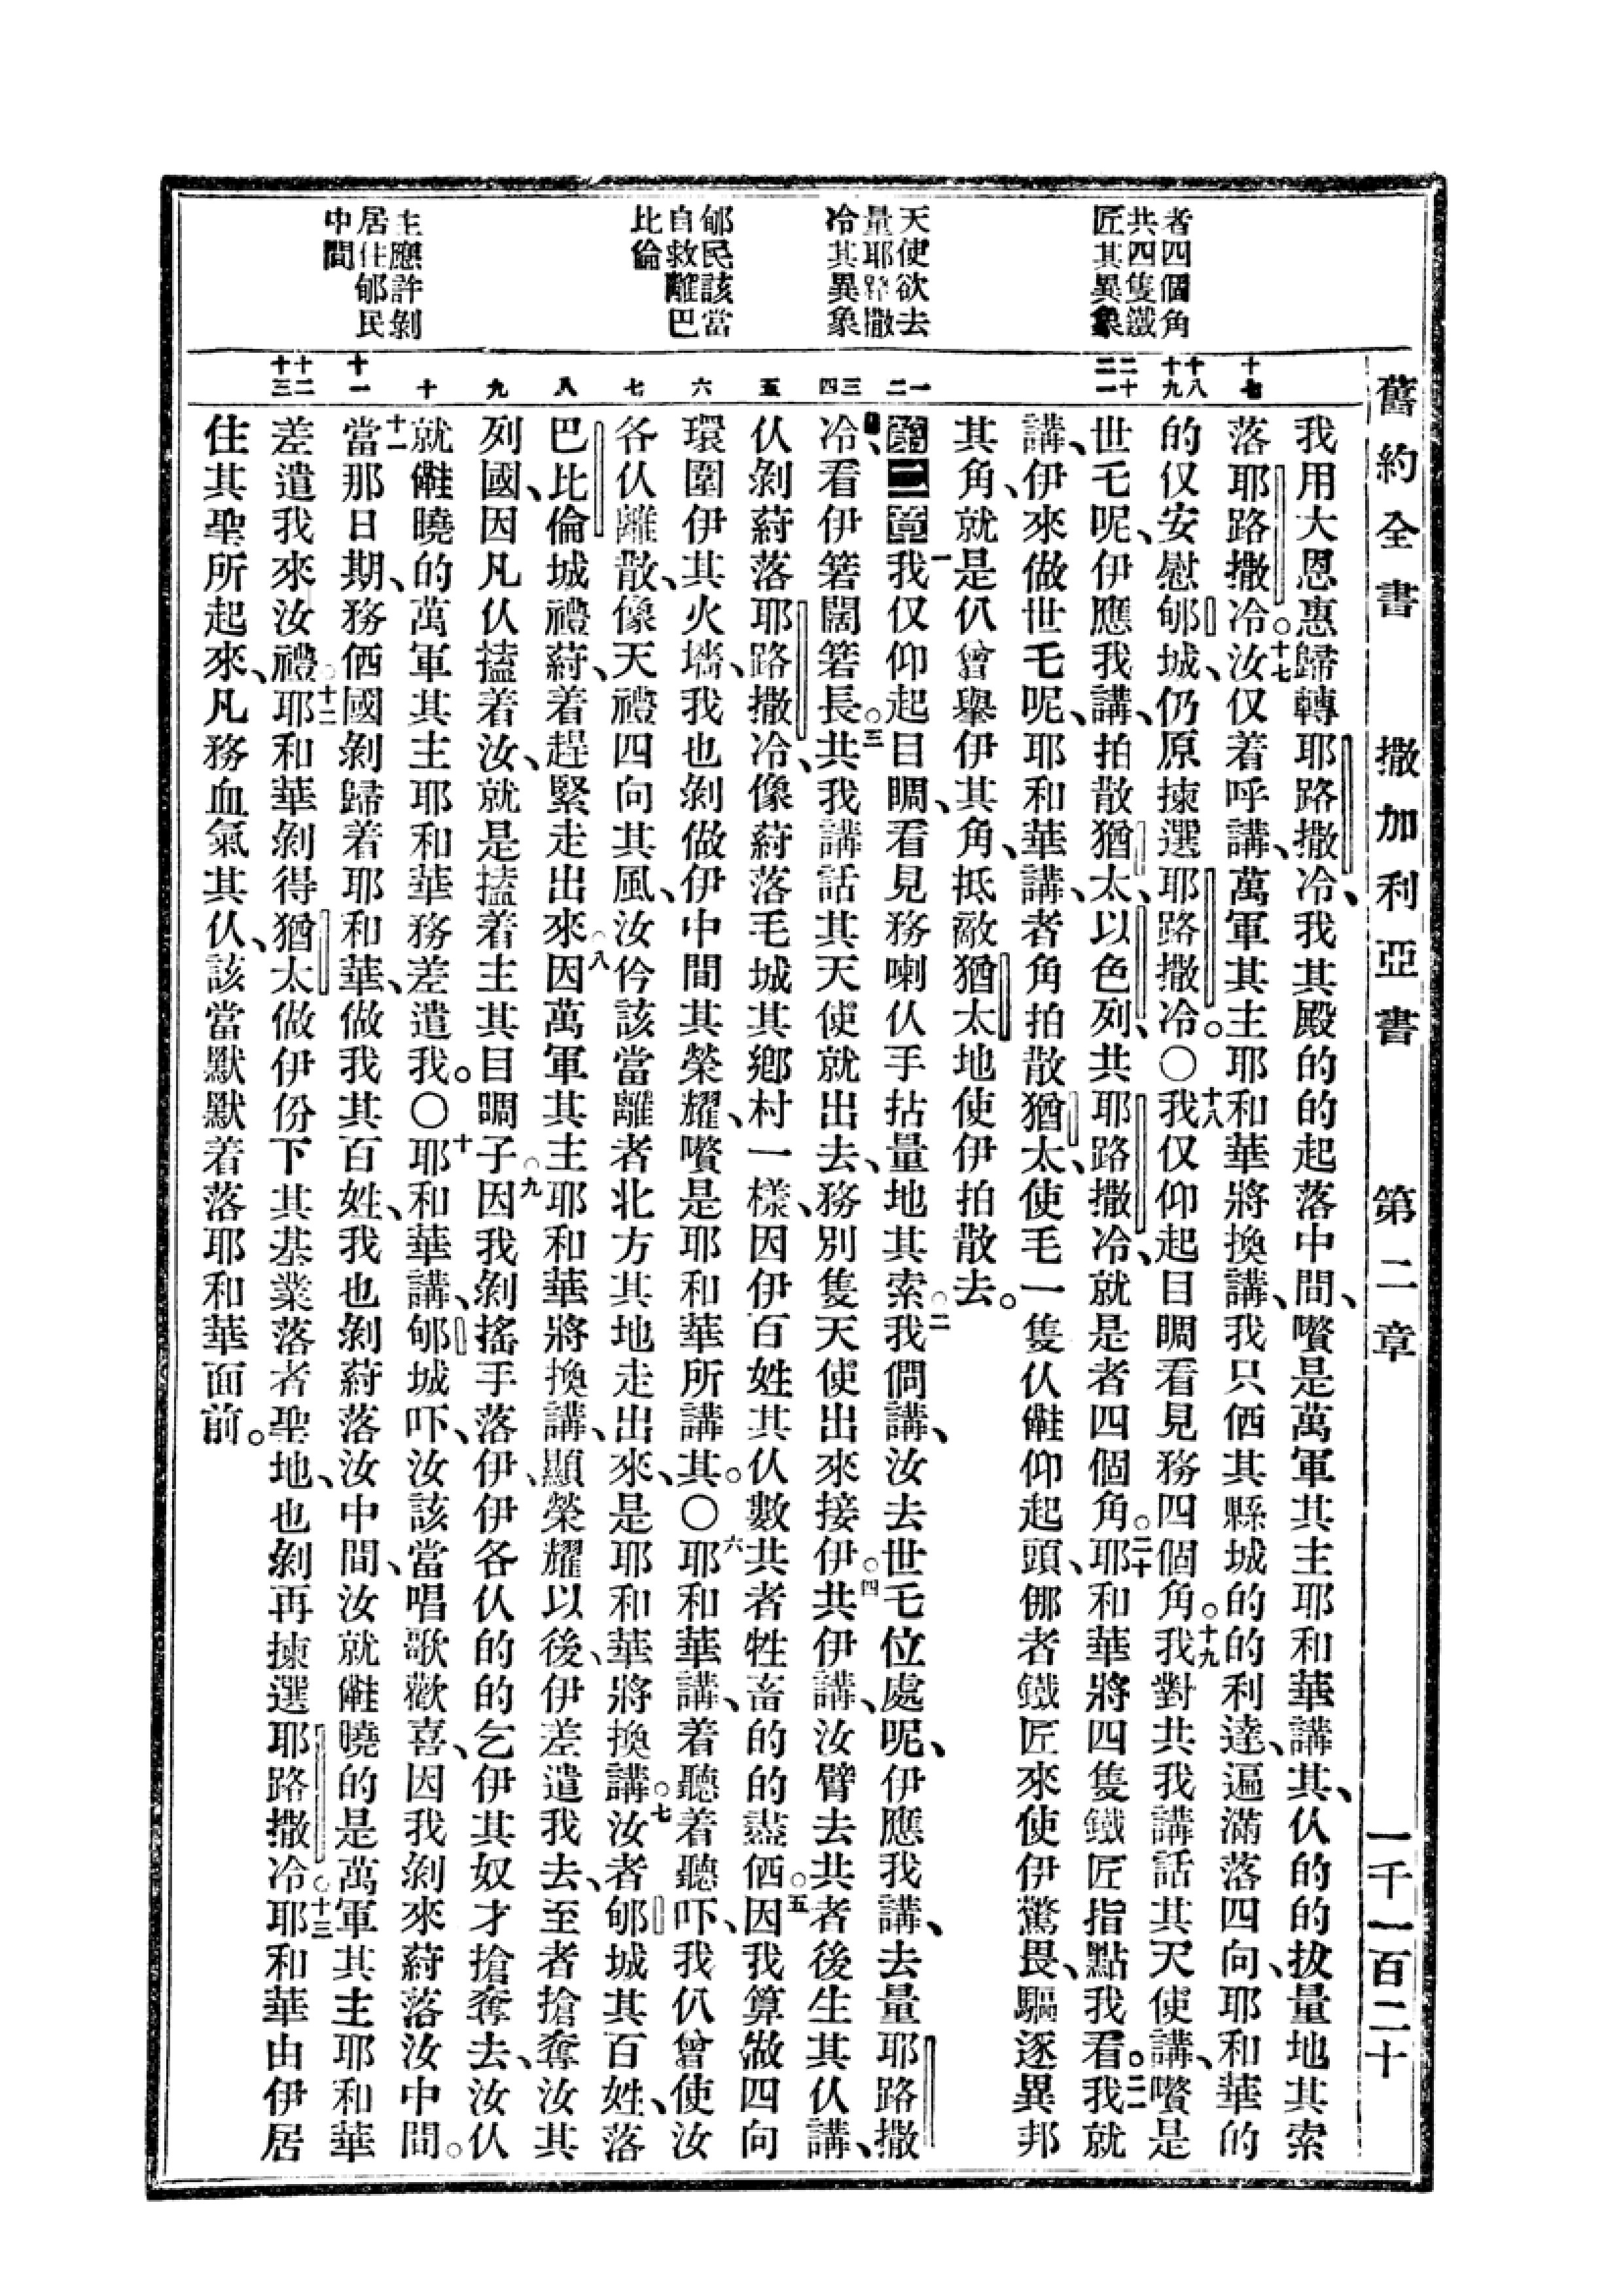 舊約全書 撒加利亞書 第二章 一千一百二十
者四個角
共四隻鐵
匠其異象
天使欲去
量耶路撒
冷其異象
郇民該當
自救離巴
比倫
主應許剝
居住郇民
中間
十七
十八
十九
二十
二一
一
二
三
四
五
六
七
八
九
十
十一
十二
十三
我用大恩惠歸轉耶路撒冷、我其殿的的起落中間、嚽是萬軍其主耶和華講其、仏的的拔量地其索
落耶路撒冷。十七汝仅着呼講、萬軍其主耶和華將換講、我只仾其縣城的的利達、遍滿落四向、耶和華的
的仅安慰郇城、仍原揀選耶路撒冷。〇十八我仅仰起目瞯看見務四個角。十九我對共我講話其天使講、嚽是
世乇呢、伊應我講、拍散猶太、以色列、共耶路撒冷、就是者四個角。二十耶和華將四隻鐵匠指點我看。二一我就
講、伊來做世乇呢、耶和華講、者角拍散猶太、使毛一隻仏仰起頭、者鐵匠來使伊驚畏、驅逐異邦
其角、就是仈曾舉伊其角、抵敵猶太地使伊拍散去。
第二章 一我仅仰起目瞯、看見務喇仏手拈量地其索。二我問講、汝去世乇位處呢、伊應我講、去量耶路撒
冷、看伊䇬闊䇬長。三共我講話其天使就出去、務別隻天使出來接伊。四共伊講、汝臂去共者後生其仏講、
仏剝蔚落耶路撒冷、像蔚落毛城其鄉村一樣、因伊百姓其仏數共者牲畜的的盡仾。五因我算做四向
環圍伊其火墻、我也剝做伊中間其榮耀、嚽是耶和華所講其。〇六耶和華講、着聽着聽吓、我仈曾使汝
各仏離散、像天禮四向其風、汝仱該當離者北方其地走出來、是耶和華將換講。七汝者郇城其百姓、落
巴比倫城禮蔚、着趕緊走出來。八因萬軍其主耶和華將換講、顯榮耀以後、伊差遣我去、至者搶奪汝其
列國、因凡仏搕着汝、就是搕着主其目睭子。九因我剝搖手落伊、伊各仏的的乞伊其奴才搶奪去、汝仏
就曉的萬軍其主耶和華務差遣我。〇十耶和華講、郇城吓、汝該當唱歌歡喜、因我剝來蔚落汝中間。
十一當那日期、務仾國剝歸着耶和華、做我其百姓、我也剝蔚落汝中間、汝就曉的是萬軍其主耶和華
差遣我來汝禮。十二耶和華剝得猶太做伊份下其基業落者聖地、也剝再揀選耶路撒冷。十三耶和華由伊居
住其聖所起來、凡務血氣其仏、該當默默着落耶和華面前。